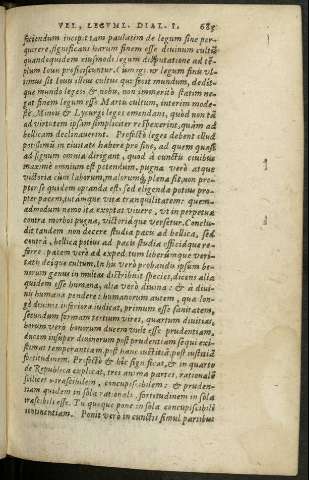 VEL, LEGVM. DIAL. I. 685
faciendum incipit tam paulatim de legum fine per-
quirere, significans harum finem esse diuinum cultũ
quandoquidem eiusmodi legum disputatione ad tẽ-
plum Iouis proficiscuntur. Cum igitur legum finis vl-
timus sit Iouis illius cultus qui fecit mundum, dedit-
que mundo leges: & nobis, non immeritò statim ne-
gat finem legum esse Martis cultum, interim mode-
stè, Minois & Lycurgi leges emendans, quòd non tã
ad virtutem ipsam simpliciter respexerint, quàm ad
bellicam declinauerint. Profectò leges debent illud
potissimũ in ciuitate habere pro fine, ad quem quasi
ad signum omnia dirigant, quod à cunctis ciuibus
maximè omnium est petendum, pugna verò atque
victoria cùm laborum, malorumq́; plena sit, non pro-
pter se quidem optanda est, sed eligenda potius pro-
pter pacem, tutamque vitæ tranquilitatem: quem-
admodum nemo ita exoptat viuere, vt in perpetua
contra morbos pugna, victoriáque versetur. Conclu-
dit tandem non decere studia pacis ad bellica, sed
contrà, bellica potius ad pacis studia officiáque re-
ferre: pacem verò ad expeditum liberúmque veri-
tatis deíque cultum. In his verò probandis ipsum bo-
norum genus in multas distribuit species, dicens alia
quidem esse humana, alia verò diuina: & à diui-
nis humana pendere: humanorum autem, qua lon-
gè diuinis inferiora iudicat, primum esse sanitatem,
secundum formam tertium vires, quartum diuitias,
horum verò bonorum ducem vult esse prudentiam,
decens insuper diuinorum post prudentiam sequi exi-
stimat temperantiam, post hanc iustitiã, post iustitiã
fortitudinem. Profectò & hîc significat, & in quarto
de Republica explicat, tres animæ partes, rationalẽ
scilicet irascibilem, concupiscibilem: & pruden-
tiam quidem in sola rationali, fortitudinem in sola
irascibili esse. Tũ quoque pone in sola concupiscibili
continentiam. Ponit verò in cunctis simul partibus